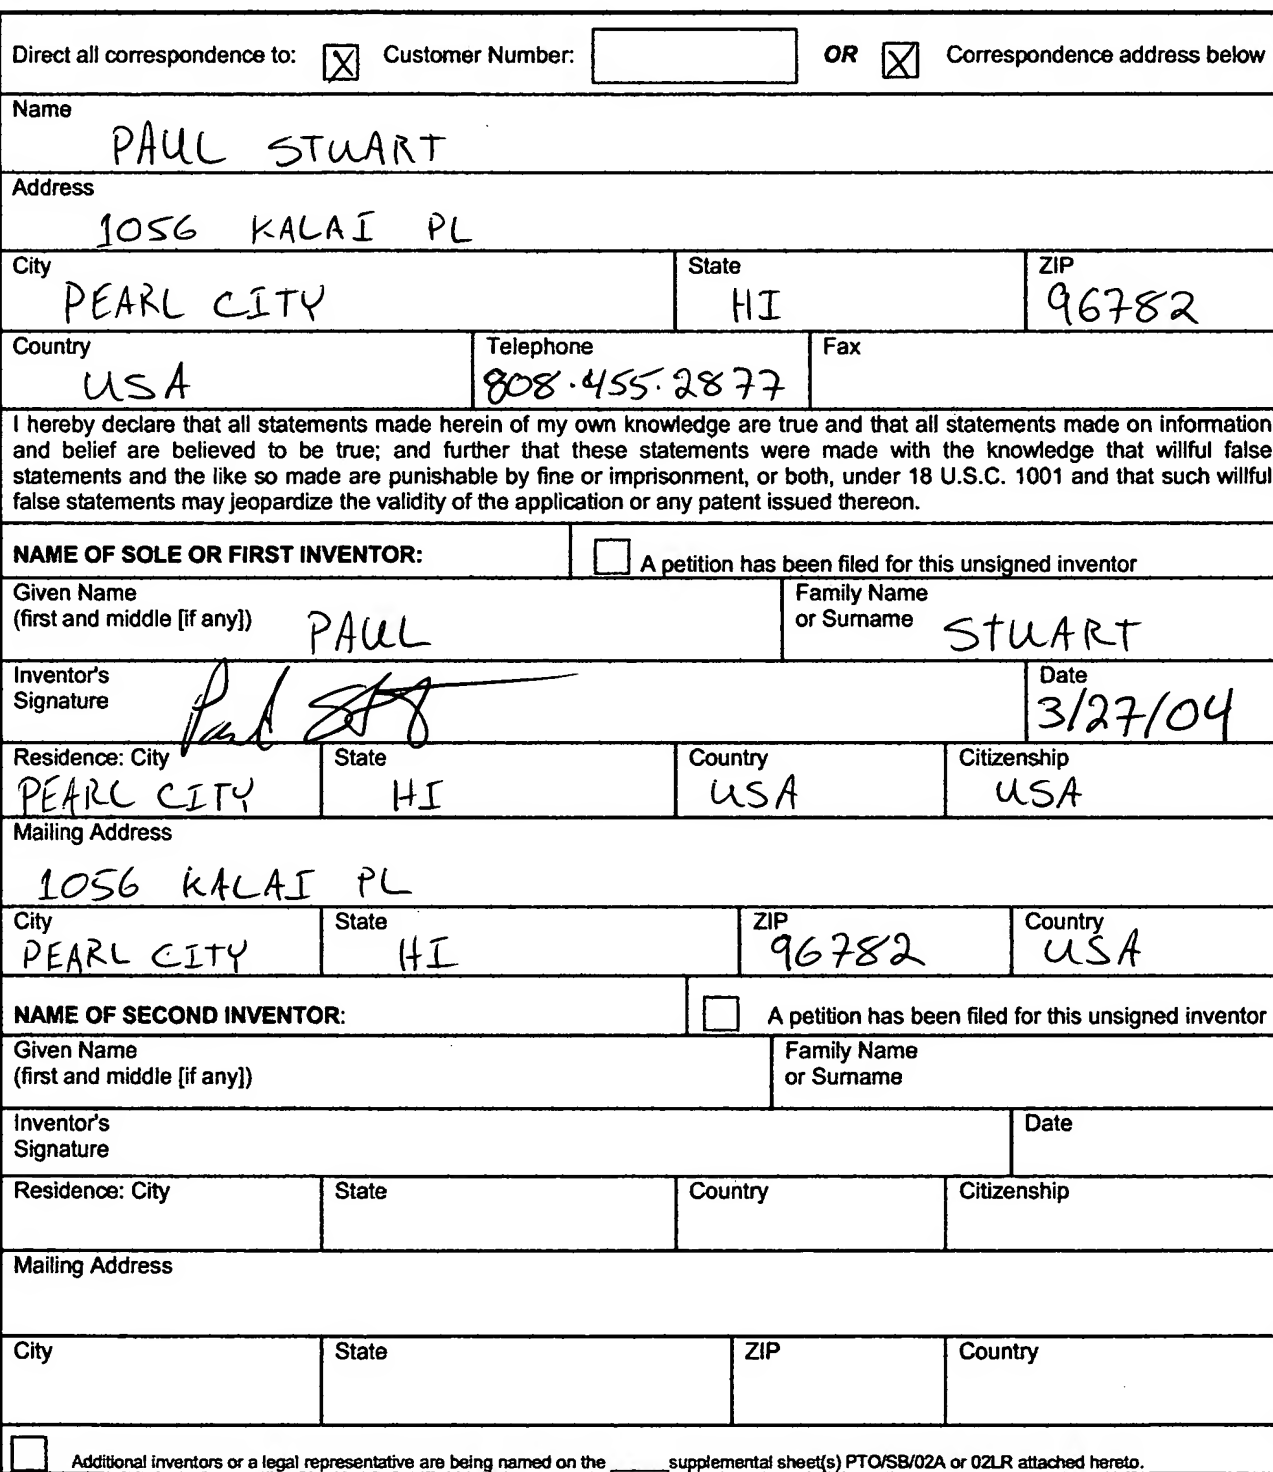 Direct all correspondence to: [X] Customer Number: OR [X] Correspondence address below
Name
PAUL STUART
Address
1056 KALAI PL
City State ZIP
PEARL CITY HI 96782
Country Telephone Fax
USA 808.455.2877
I hereby declare that all statements made herein of my own knowledge are true and that all statements made on information
and belief are believed to be true; and further that these statements were made with the knowledge that willful false
statements and the like so made are punishable by fine or imprisonment, or both, under 18 U.S.C. 1001 and that such willful
false statements may jeopardize the validity of the application or any patent issued thereon.
NAME OF SOLE OR FIRST INVENTOR: A petition has been filed for this unsigned inventor
Given Name Family Name
(first and middle [if any]) PAUL or Surname STUART
Inventor's Date
Signature Paul St 3/27/04
Residence: City State Country Citizenship
PEARL CITY HI USA USA
Mailing Address
1056 KALAI PL
City State ZIP Country
PEARL CITY HI 96782 USA
NAME OF SECOND INVENTOR: A petition has been filed for this unsigned inventor
Given Name Family Name
(first and middle [if any]) or Surname
Inventor's Date
Signature
Residence: City State Country Citizenship
Mailing Address
City State ZIP Country
Additional inventors or a legal representative are being named on the ______ supplemental sheet(s) PTO/SB/02A or 02LR attached hereto.